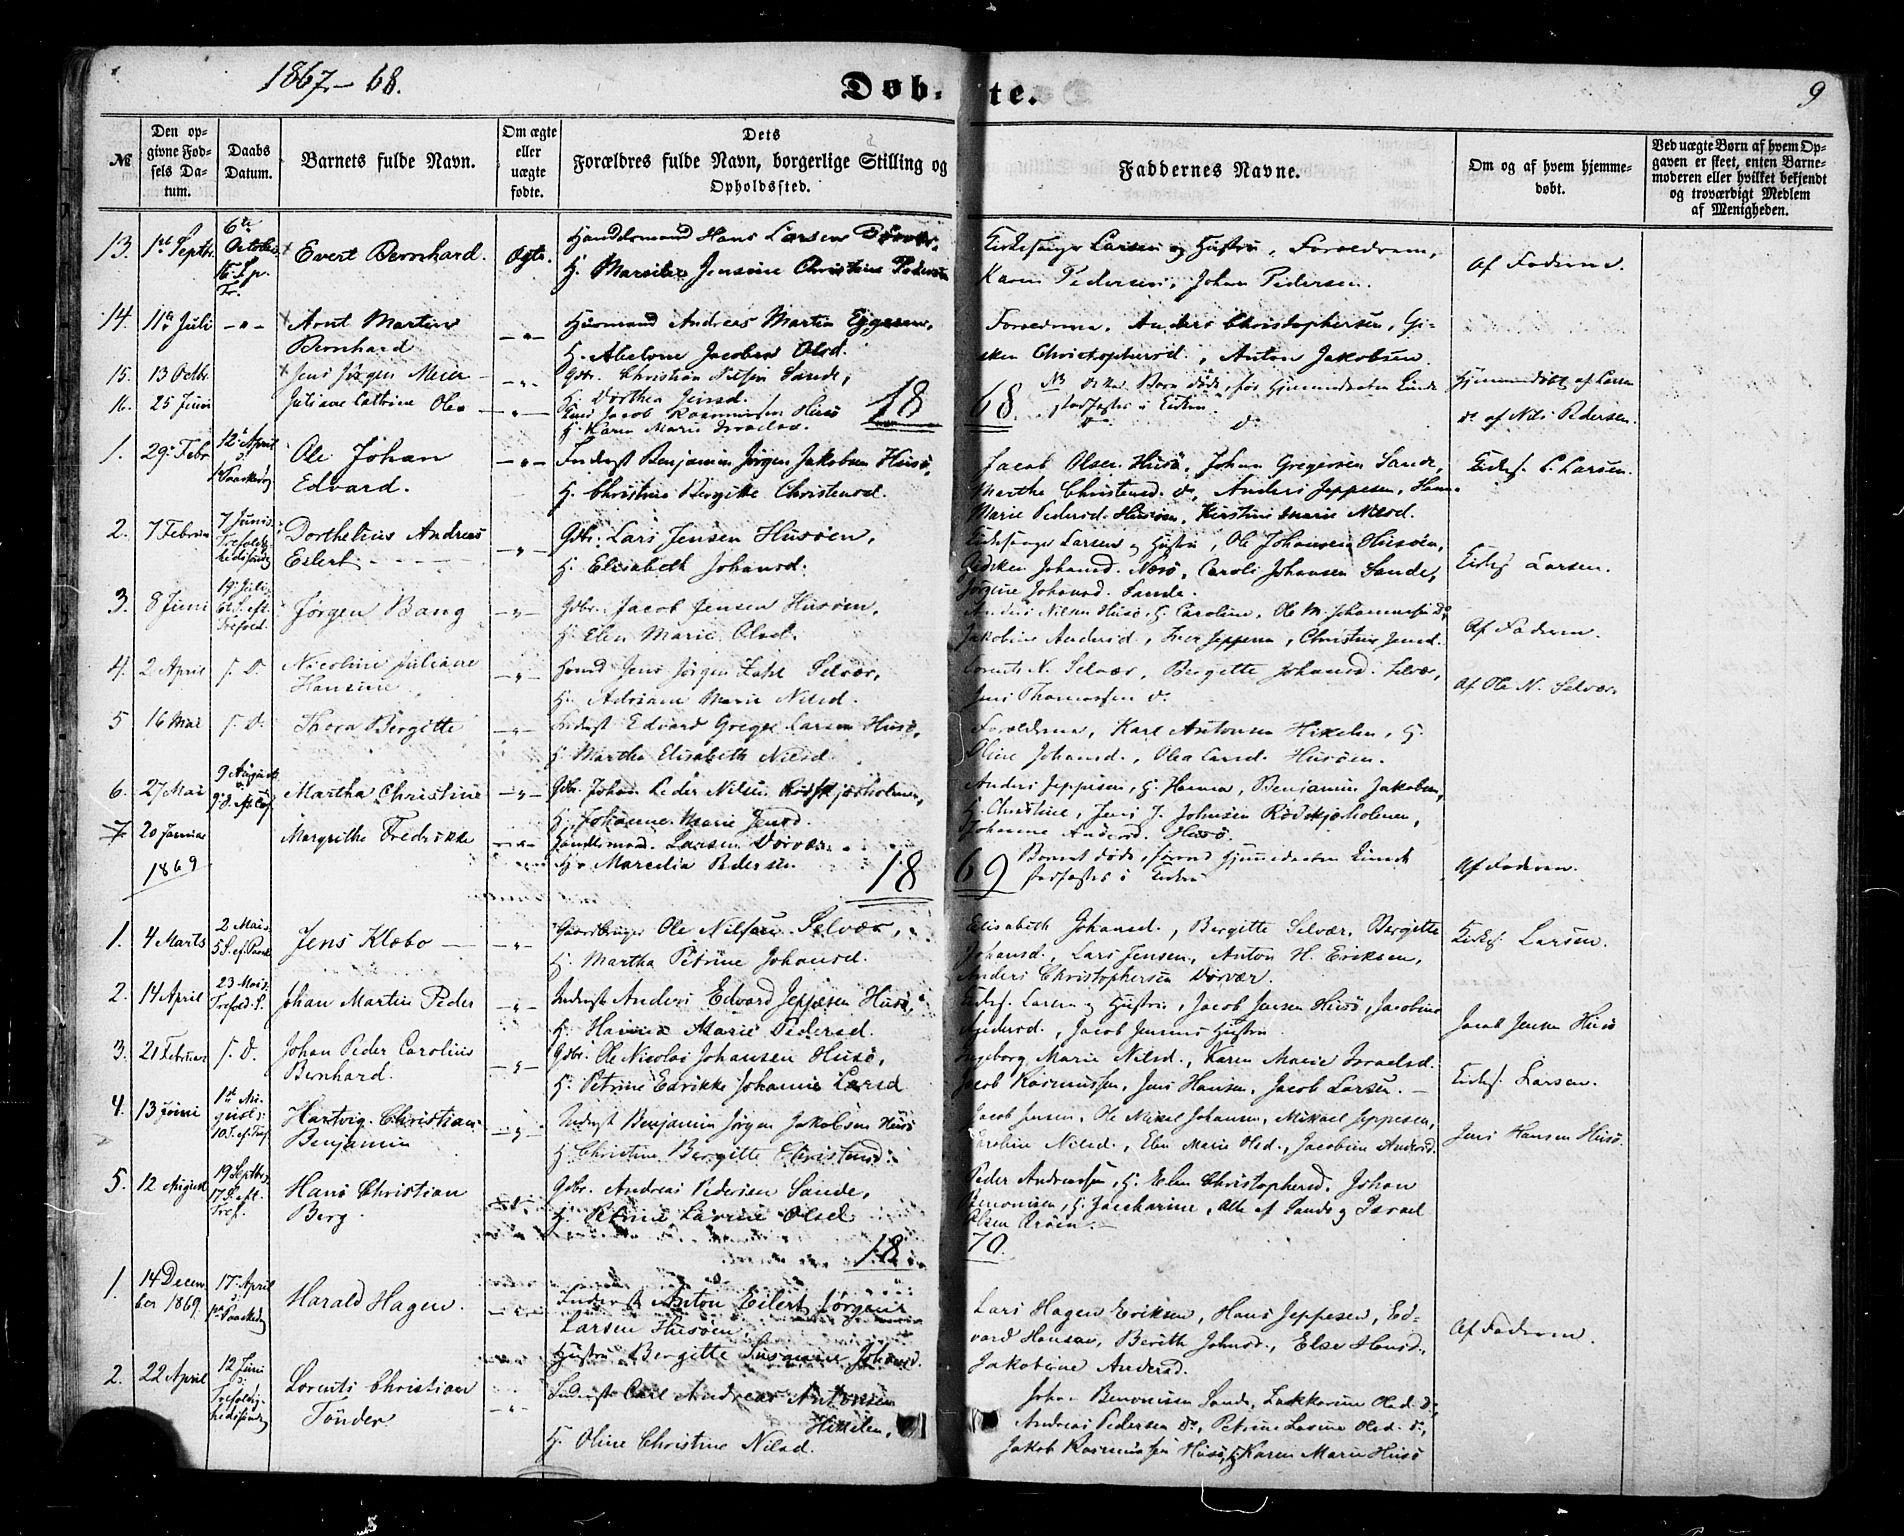 1867-68.
Døb-
te.
9
№
Den op-
givne Fød-
sels Da-
tum.
Daabs
Datum.
Barnets fulde Navn.
Om ægte
eller
uægte
fødte.
Dets
Forældres fulde Navn, borgerlige Stilling og
Opholdssted.
Faddernes Navne.
Om og af hvem hjemme-
døbt.
Ved uægte Børn af hvem Op-
gaven er skeet, enten Barne-
moderen eller hvilket bekjendt
og troværdigt Medlem
af Menigheden.
13. 1ste Septbr. 6te October Evert Bernhard. Ægte.
Handelsmand Hans Larsen Dørvær,
H. Marcilie Jensine Christine Pedersen
Kirkesanger Larsen og Hustru, Forældrene,
Karen Pedersen, Johan Pedersen.
Af Faderen.
14. 11te Juli -"- Arnt Martin
Bernhard -"-
Huusmand Andreas Martin Eggesen,
H. Abelone Jacobea Olsd.
Forældrene, Anders Christophersen, Gi-
sken Christophersd., Anton Jakobsen.
15. 13 Octbr. Jens Jørgen Meier -"-
Gdbr. Christian Nilsen Sande,
H. Dorthea Jensd.
Hjemmedøbt af Larsen
16. 25 Juni Juliane Cathrine Olea -"-
Jacob Rasmussen Husø
H. Karen Marie Israelsd.
Børn døde, før Hjemmedaaben
Do af Nils Pedersen.
18 68.
1. 29. Febr. 12te April
Paaskedag Ole Johan
Edvard. -"-
Inderst Benjamin Jørgen Jakobsen Husø,
H. Christine Bergitte Christensd.
Jacob Olsen Husø, Johan Gregersen Sande,
Marthe Christensd. Do, Anders Jeppesen, Hanna
Marie Pedersd. Husøen, Kirstine Marie Nilsd.
Kirkes. L. Larsen.
2. 7 Februar 7 Juni
Trefoldig-
hedssøndag Dorthetius Andreas
Eilert -"-
Gdbr. Lars Jensen Husøen,
H. Elisabeth Johansd.
Kirkesanger Larsen og Hustru, Ole Johansen Husøen,
Johansd. Næsø, Caroli Johansen Sande,
Jørgine Johansd. Sande.
Kirkes. Larsen.
3. 8 Juni 19 Juli
6te S. eft.
Trefold. Jørgen Bang -"-
Gdbr. Jacob Jensen Husøen,
H. Elen Marie Olsd.
Anders Nilsen Husø, H. Caroline, Ole M. Johannesen Do,
Jakobine Andersd., Iver Jeppesen, Christine Jensd.
Af Faderen.
4. 2 April s. D. Nicoline Juliane
Hansine -"-
Jens Jørgen Zahl Selvær,
H. Adriane Marie Nilsd.
Lorents N. Selvær, Bergitte Johansd. Selvær,
Jens Thomassen Do
Af Ole N. Selvær.
5 16 Mai s. D. Thora Bergitte -"-
Inderst Edvard Greger Larsen Husø,
H. Martha Elisabeth Nilsd.
Forældrene, Karl Antonsen Hikelen, H.
Oline Johansd., Olea Larsd. Husøen.
6. 27 Mai 9 August Martha Christine -"-
Gdbr. Johan Peder Nilsen Rødskjæholmen,
H. Johanne Marie Jensd.
Anders Jeppesen, H. Hanna, Benjamin Jakobsen,
H. Christine, Jens J. Johnsen Rødskjæholmen,
Johanne Andersd. Husø.
7. 20 Januar
1869 Margrethe Fredrikke -"-
Handelsmand Larsen Dørvær
H. Marcelia Pedersen
Barnet døde, førend Hjemmedaaben kunde
stadfæstes i Kirken
Af Faderen.
18 69
1. 4 Marts 2 Mai
5 S. ef. Paaske Jens Klæbo -"-
Gaardbruger Ole Nilsen Selvær,
H. Martha Petrine Johansd.
Elisabeth Johansd., Bergitte Selvær, Bergitte
Johansd., Lars Jensen, Anton H. Eriksen,
Anders Christophersen Dørvær.
Kirkes. Larsen.
2. 14 April 23 Mai
Trefold. S. Johan Martin Peder -"-
Inderst Anders Edvard Jeppesen Husø,
H. Hanna Marie Pedersd.
Kirkes. Larsen og Hustru, Jacob Jensen Husø, Jacobine
Andersd., Jacob Jensens Hustru.
Jacob Jensen Husø
3. 21 Februar s. D. Johan Peder Carolius
Bernhard. -"-
Gdbr. Ole Nicolai Johansen Husø,
H. Petrine Edrikke Johanne Larsd
Ingeborg Marie Nilsd., Karen Marie Israelsd.
Jacob Rasmussen, Jens Hansen, Jacob Larsen.
Kirkes. Larsen.
4. 13 Juni 1ste Au-
gust
10 S. ef. Tref. Hartvig Christian
Benjamin -"-
Inderst Benjamin Jørgen Jakobsen Husø
H. Christine Bergitte Christensd.
Jacob Jensen, Ole Mikal Johansen, Mikael Jeppesen,
Caroline Nilsd., Elen Marie Olsd., Jacobine Andersd.
Jens Hansen Husø.
5. 12 August 19 Septbr.
17 S. eft.
Tref. Hans Christian
Berg. -"-
Gdbr. Andreas Pedersen Sande,
H. Petrine Lavine Olsd.
Peder Andreassen, H. Elen Christophersd., Johan
Benonisen, H. Zaccharine, Alle af Sande og Israel
Olsen Ørøen.
18 70.
1. 14 Decem-
ber 1869. 17. April
Paaskedag Harald Hagen. -"-
Inderst Anton Eilert Jørgen
Larsen Husøen,
Hustru Bergitte Susanne Johansd.
Lars Hagen Eriksen, Hans Jeppesen, Ed-
vard Hansen, Berith Johnsd., Else Hansd.,
Jakobine Andersd.
Af Faderen.
2. 22 April 12 Juni
Trefoldig-
hedssøndag Lorents Christian
Tønder -"-
Inderst Carl Andreas Antonsen
Hikelen,
H. Oline Christine Nilsd.
Johan Benonisen Sande, Zakkarine Olsd. Do,
Andreas Pedersen Do, Petrine Lavine Olsd. Do,
Jakob Rasmussen Husø, H. Karen Marie Husø